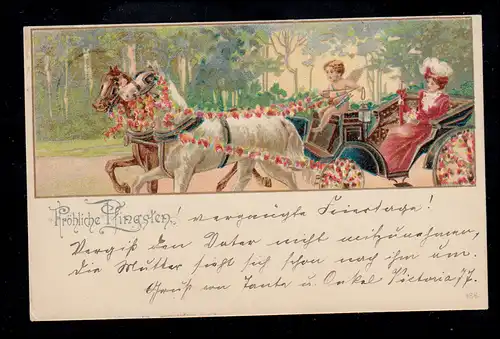 Fröhliche Pfingsten! vergnügte Feiertage!
Vergiß den Vater nicht mitzunehmen,
die Mutter sieht sich schon nach ihm um.
Gruß von Tante u. Onkel Victoria 77.